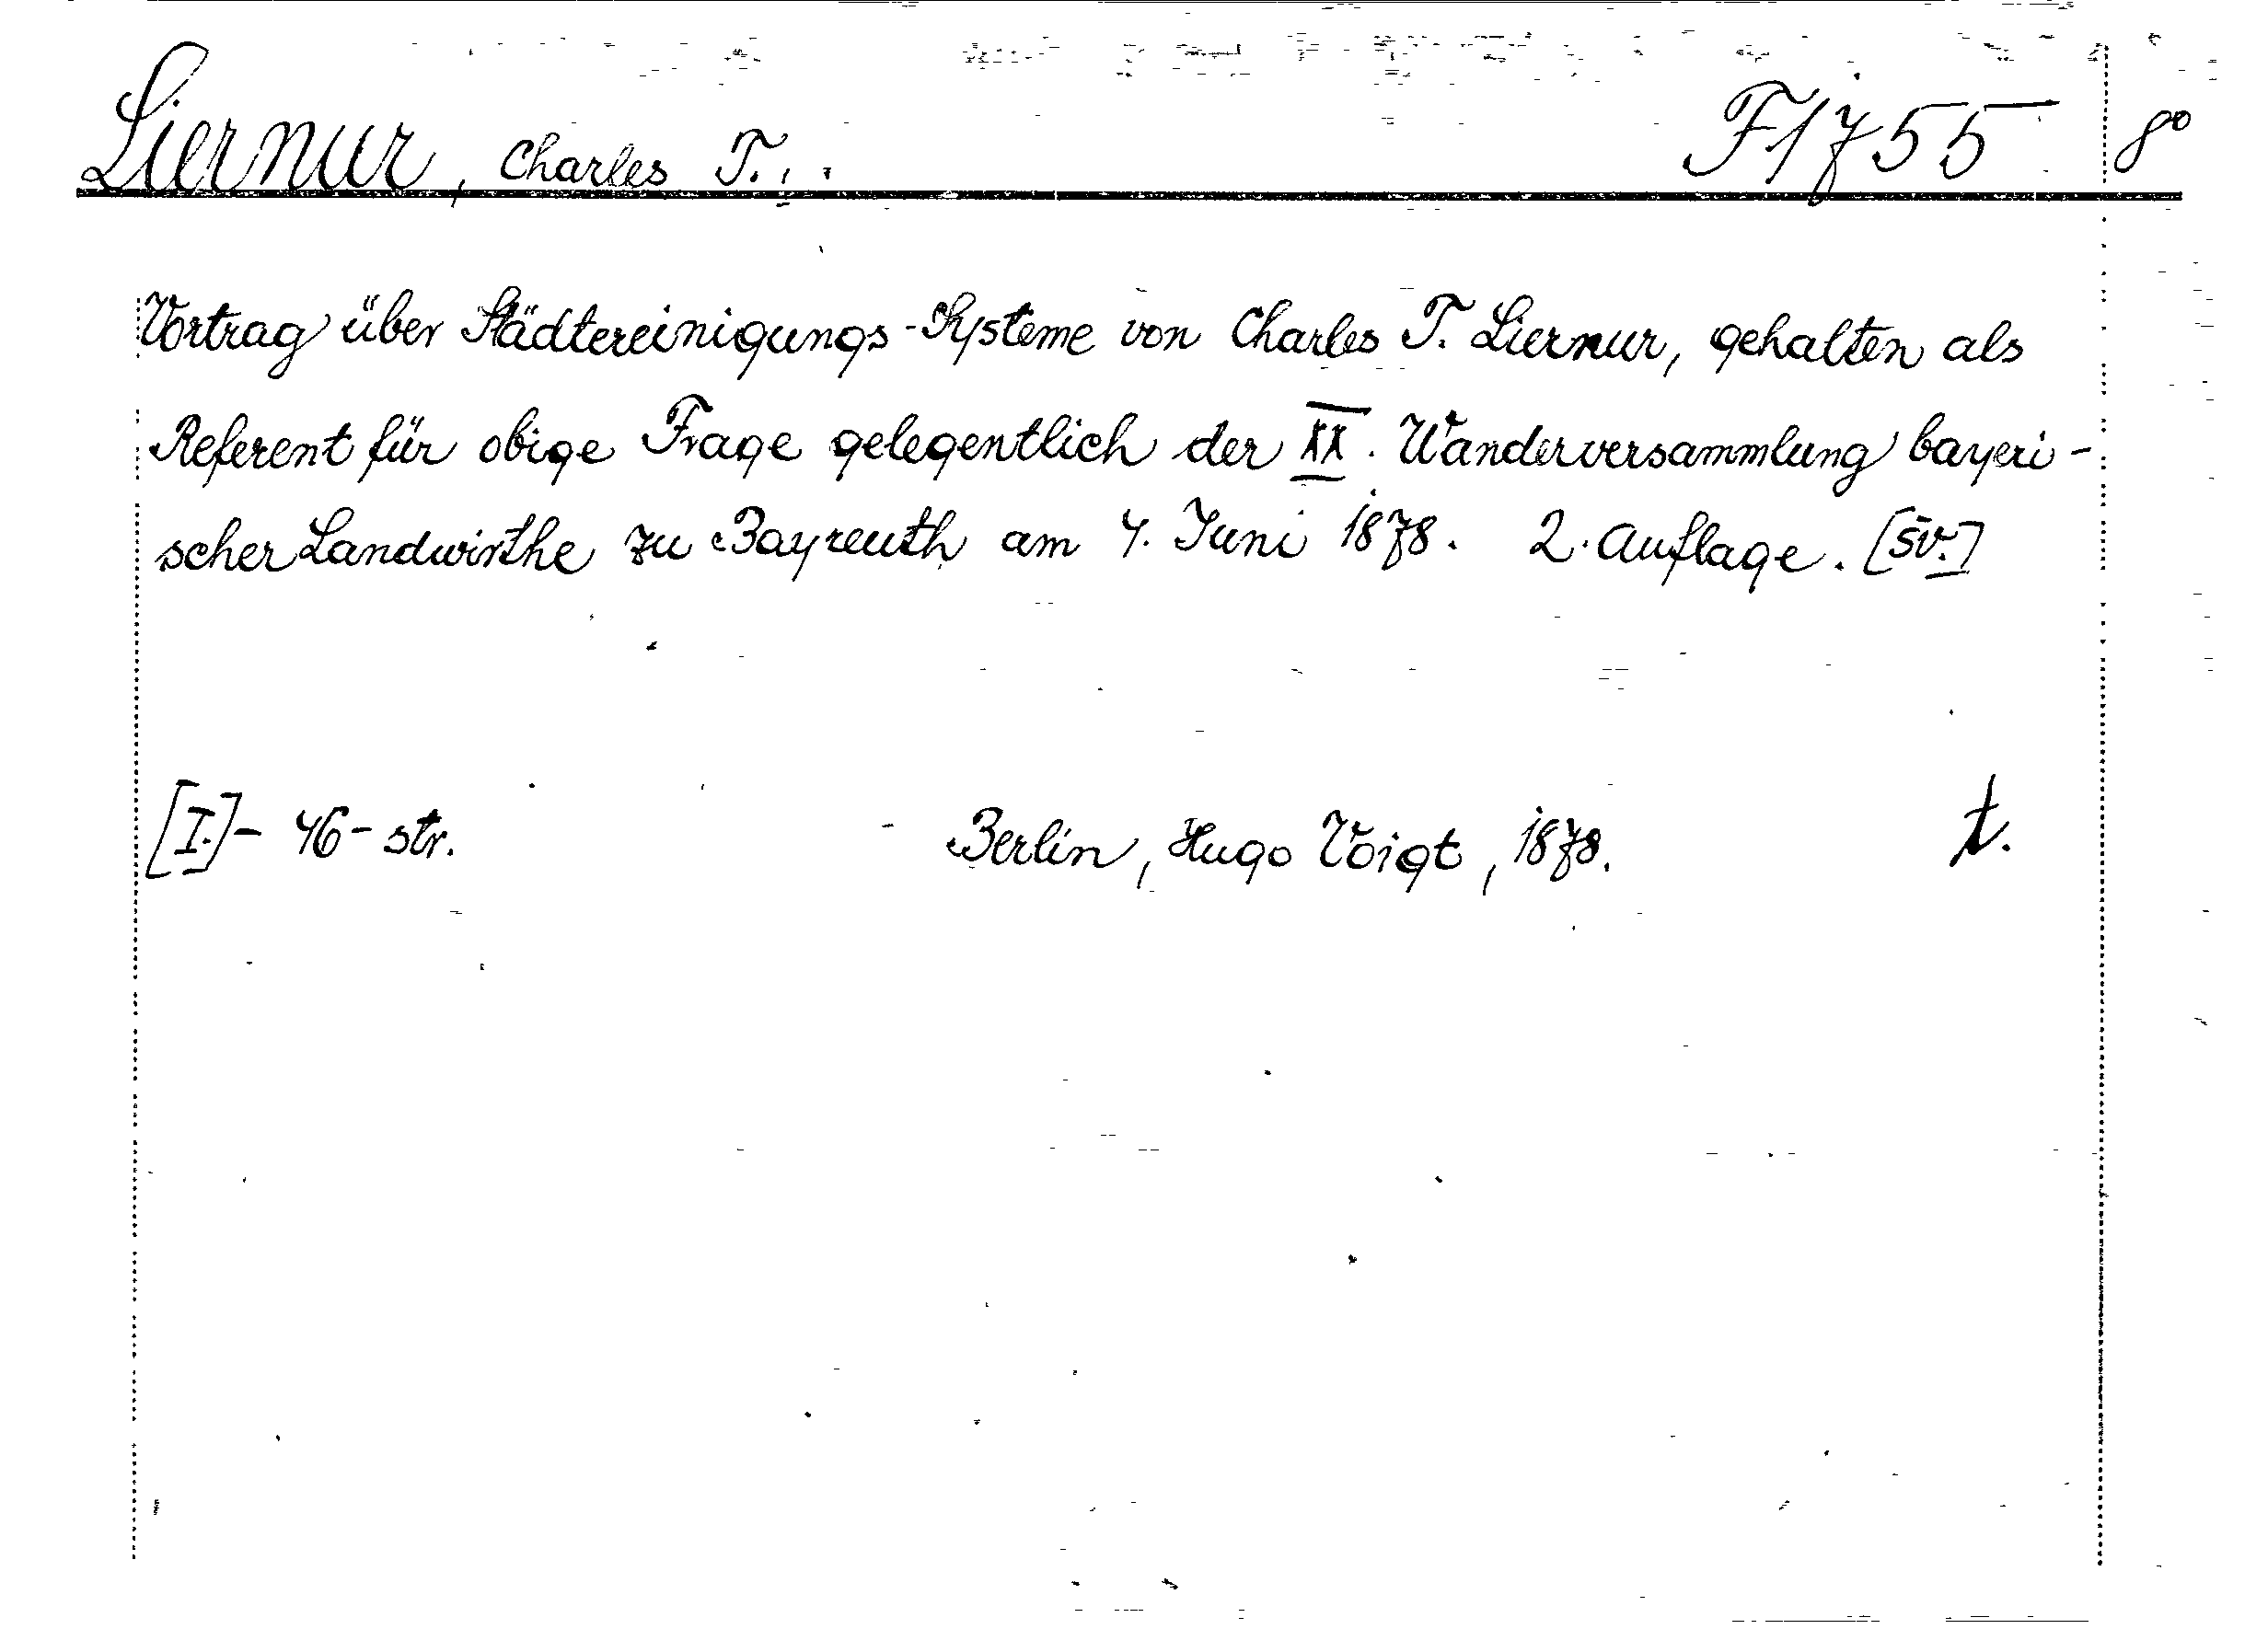 Liernur, Charles T.,. F1755 8°
Vortrag über Städtereinigungs-Systeme von Charles T. Liernur, gehalten als
Referent für obige Frage gelegentlich der XX. Wanderversammlung bayeri-
scher Landwirthe zu Bayreuth am 4. Juni 1878. 2. Auflage. [Sv.]
[I.]- 46- str. Berlin, Hugo Voigt, 1878. t.